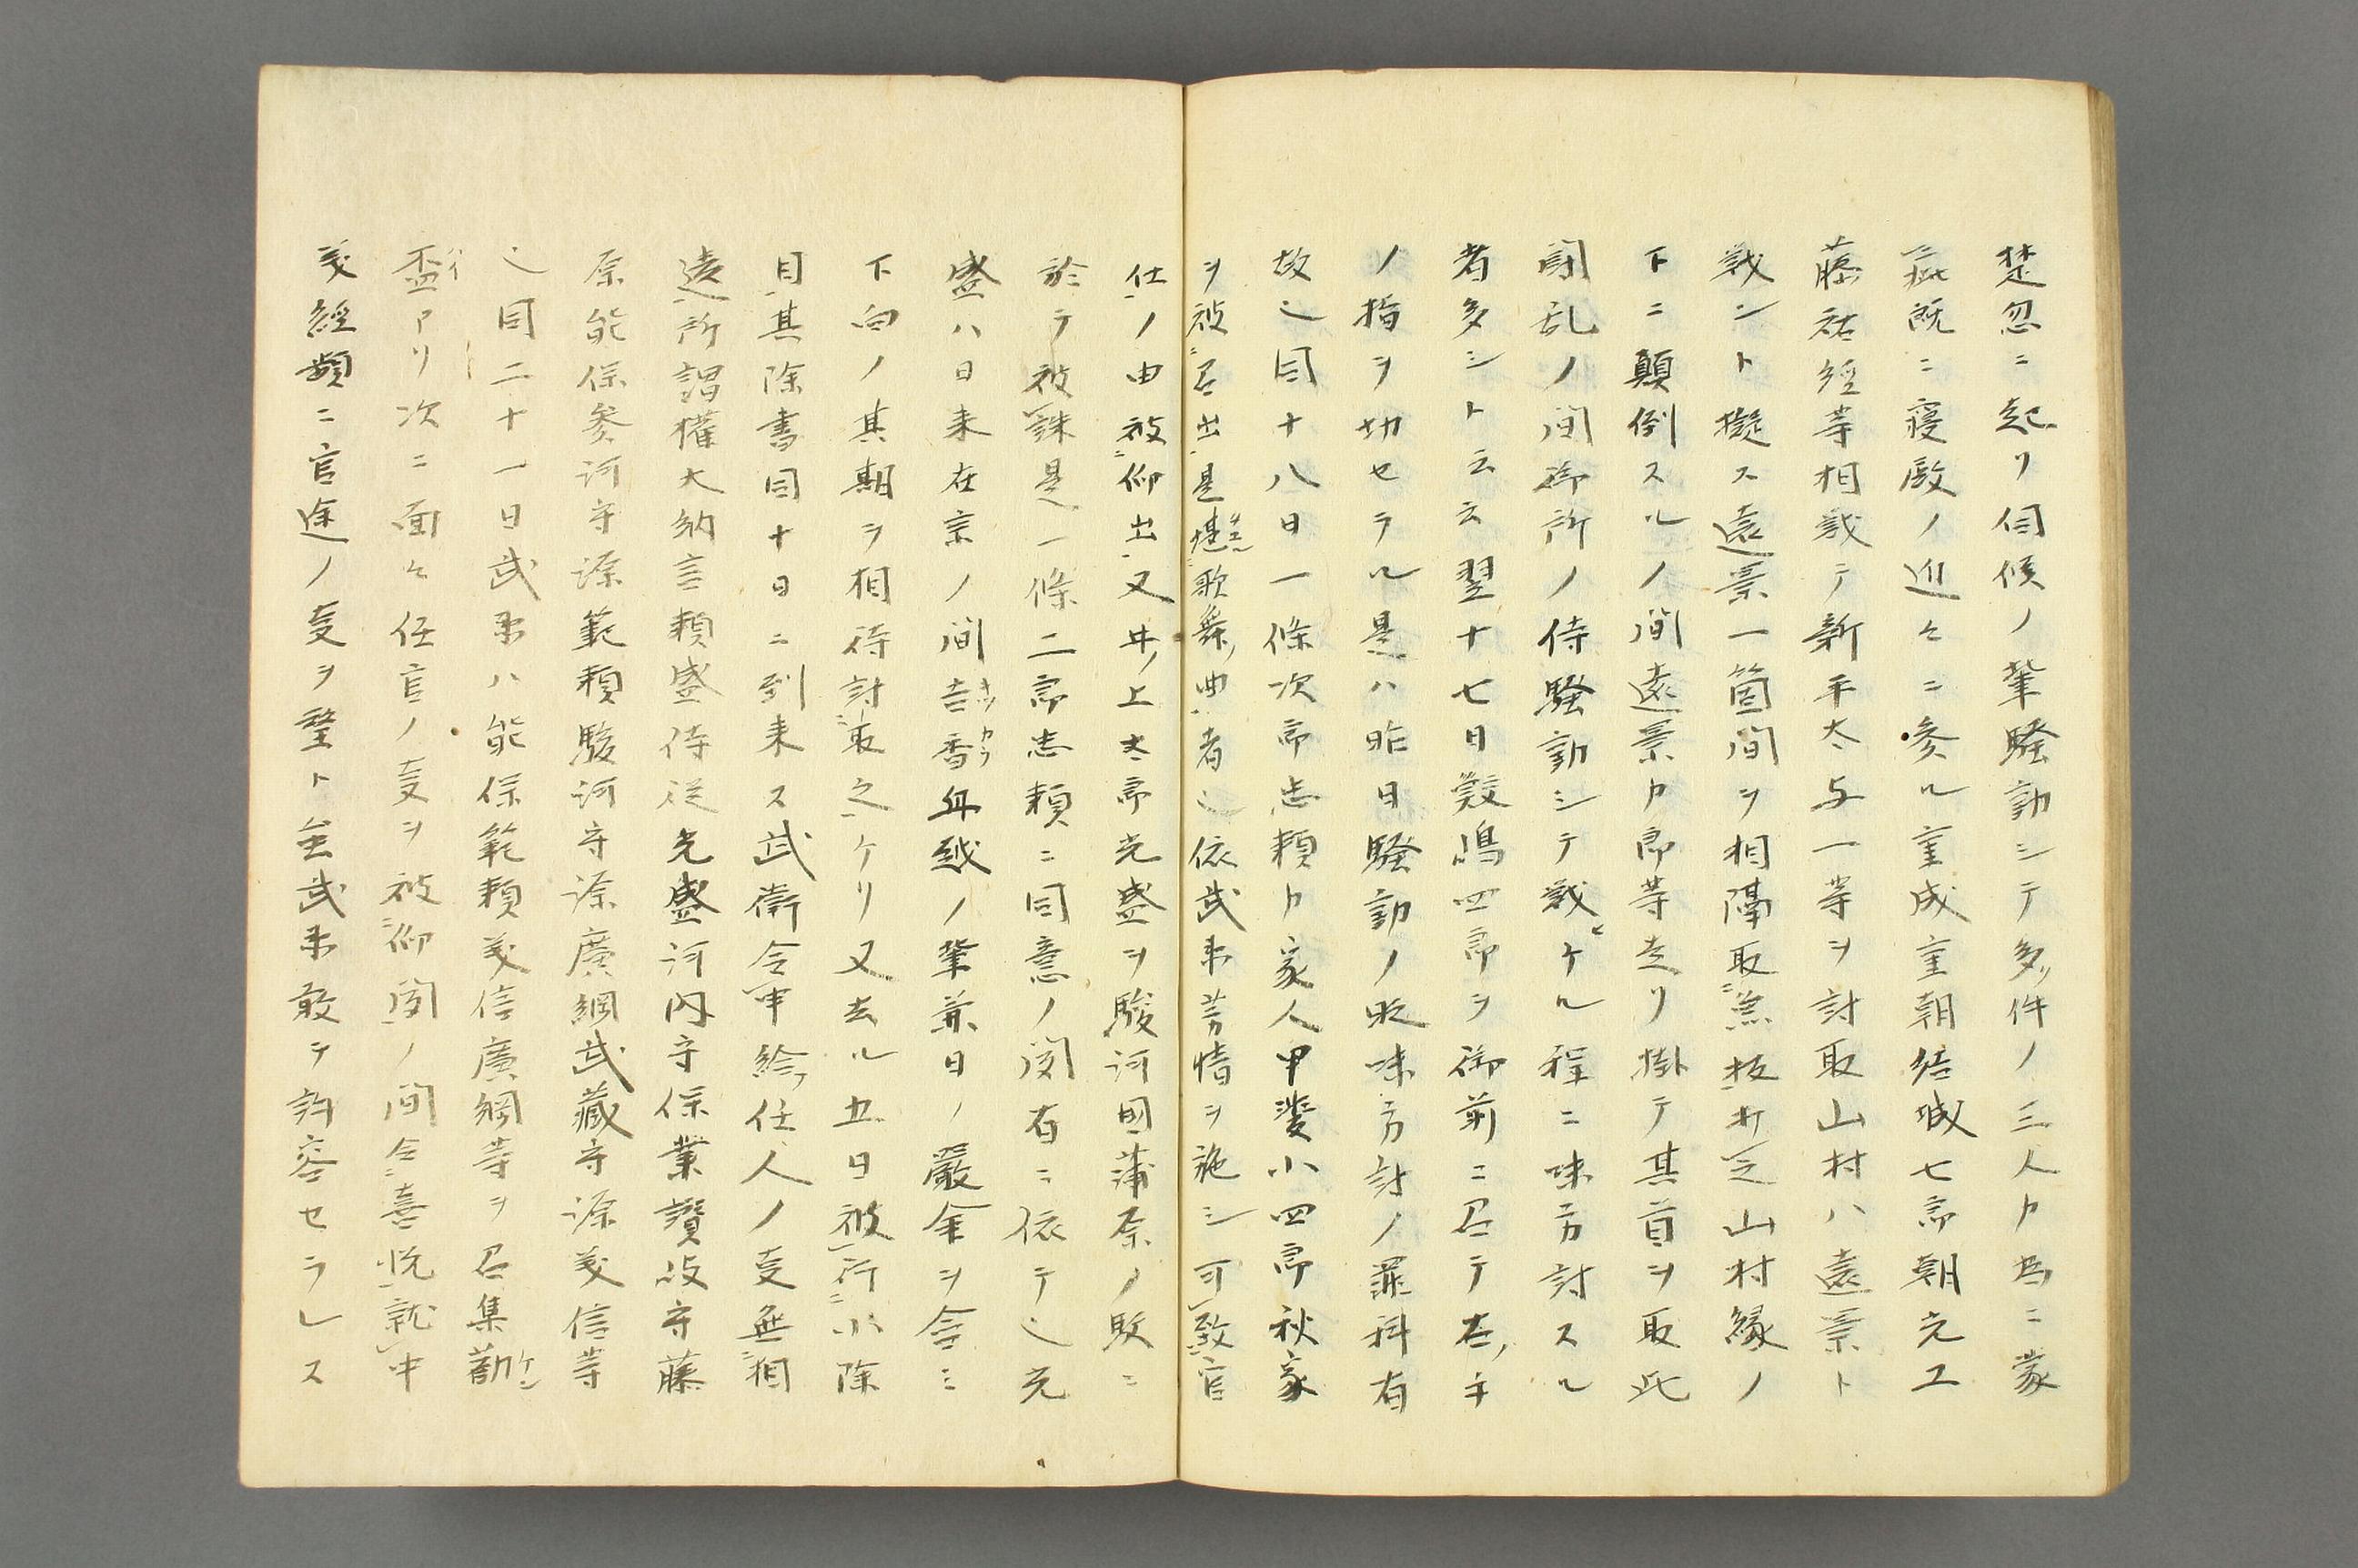 楚忽ニ起リ伺候ノ輩騒動シテ多リ件ノ三人カ為ニ蒙
疵既ニ寝殿ノ近々ニ参ル重成重朝結城七郎朝光工
藤祐経等相戦テ新平太与一等ヲ討取山村ハ遠景ト
戦ント擬ス遠景一箇間ヲ相隔取ニ無板打之山村縁ノ
下ニ顛倒スルノ間遠景カ郎等走リ掛テ其首ヲ取此
闘乱ノ間御所ノ侍騒動シテ戦ヒケル程ニ味方討スル
者多シト云云翌十七日鮫嶋四郎ヲ御前ニ召テ右ノ手
ノ指ヲ切セラル是ハ昨日騒動ノ时味方討ノ罪科有
故也同十八日一條次郎忠頼カ家人甲斐小四郎秋家
ヲ被召出是堪歌舞ノ曲者也依武衛芳情ヲ施シ可致官
仕ノ由被仰出又井ノ上太郎光盛ヲ駿河國蒲原ノ駅ニ
於テ被誅是一條二郎忠頼ニ同意ノ聞有ニ依テ也光
盛ハ日来在京ノ間吉香舩越ノ輩兼日ノ嚴命ヲ含ミ
下向ノ其期ヲ相待討取之ケリ又去ル五日被行小除
目其除書同十日ニ到来ス武衛令申給フ任人ノ支無相
違所謂權大納言頼盛侍従光盛河内守保業讃岐守藤
原能保参河守源範頼駿河守源廣綱武藏守源義信等
也同二十一日武衛ハ能保範頼義信廣綱等ヲ召集勧
盃アリ次ニ面々任官ノ支ヲ被仰聞ノ間令喜悦就中
義經頻ニ官途ノ支ヲ望ト雖武衛敢テ許容セラレス